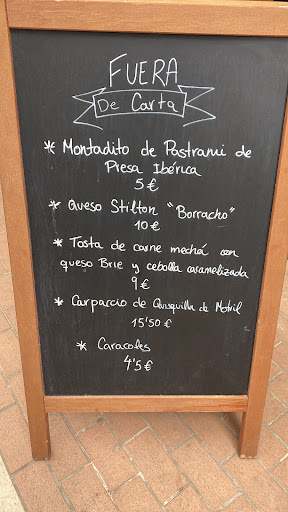 FUERA
De Carta
* Montadito de Pastrami de
Presa Ibérica
5€
* Queso Stilton "Borracho"
10€
* Tosta de carne mechá con
queso Brie y cebolla caramelizada
9€
* Carpaccio de Quisquilla de Motril
15'50€
* Caracoles
4'5€